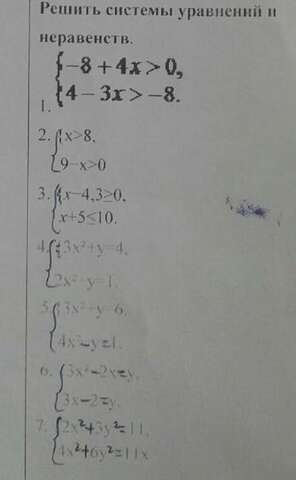 Решить системы уравнений и
неравенств.
1. {−8 + 4x > 0,
4 − 3x > −8.
2. {x>8,
9−x>0
3. {x−4,3≥0,
x+5≤10.
4. {3x²+y=4,
2x²−y=1.
5. {3x²+y=6,
4x²−y=1.
6. {3x²−2x=y,
3x−2=y.
7. {2x²+3y²=11,
4x²+6y²=11x